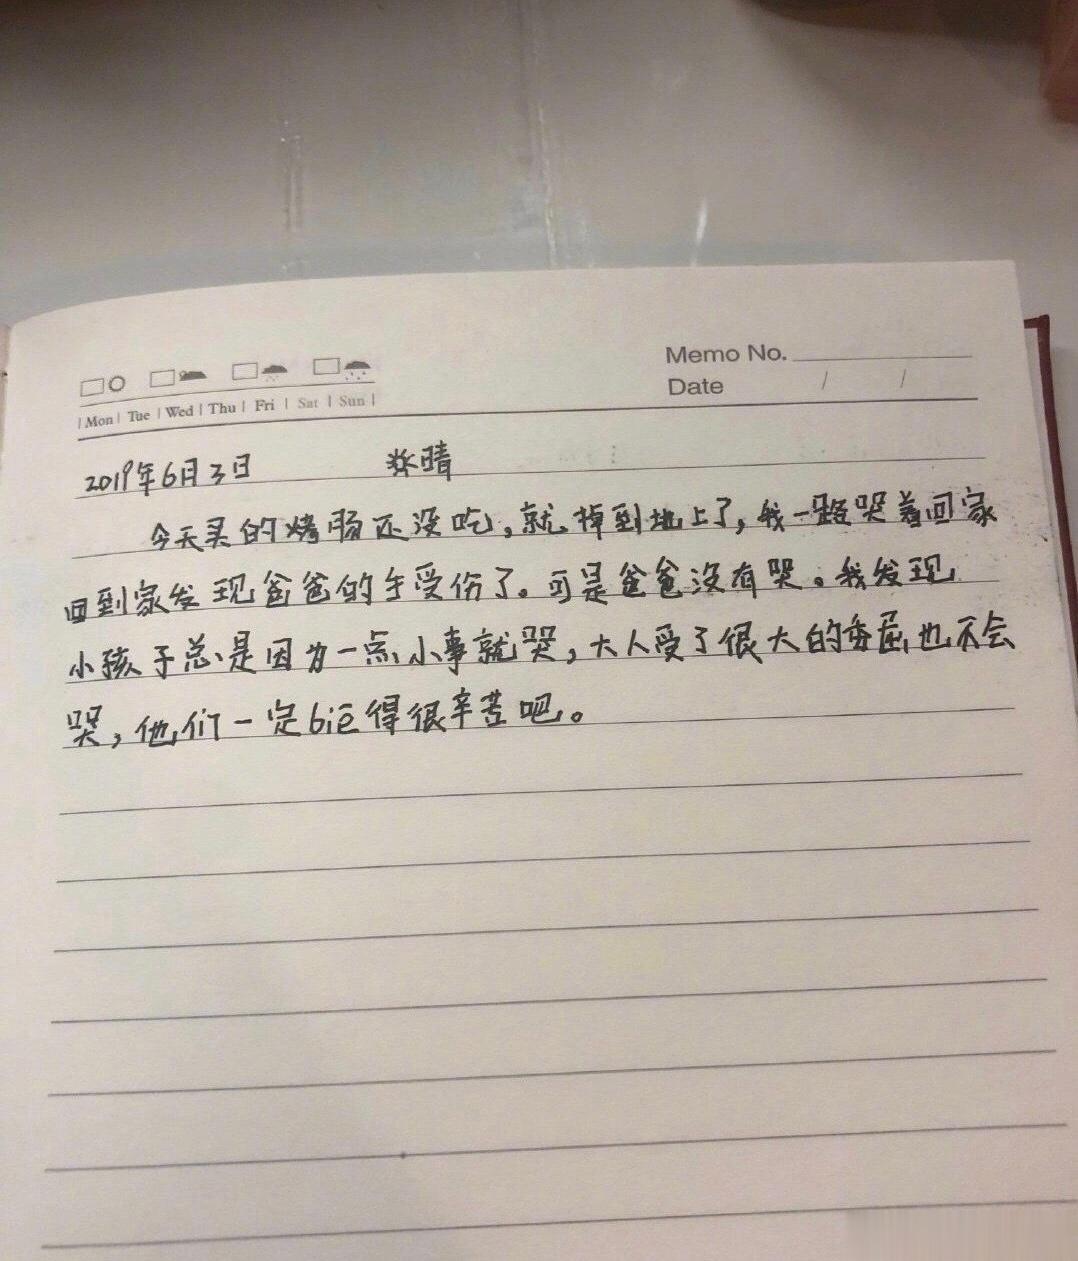 Memo No.
Date / /
Mon | Tue | Wed | Thu | Fri | Sat | Sun
2019年6月3日 晴
今天买的烤肠还没吃,就掉到地上了,我一路哭着回家
回到家发现爸爸的手受伤了。可是爸爸没有哭。我发现
小孩子总是因为一点小事就哭,大人受了很大的委屈也不会
哭,他们一定biē得很辛苦吧。